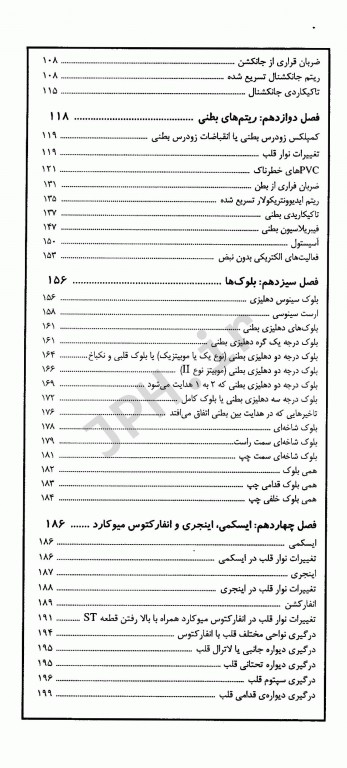 ضربان قراری از جانکشن ........ ۱۰۸
ریتم جانکشنال تسریع شده ........ ۱۰۸
تاکیکاردی جانکشنال ........ ۱۱۵
فصل دوازدهم: ریتم‌های بطنی ........ ۱۱۸
کمپلکس زودرس بطنی یا انقباضات زودرس بطنی ........ ۱۱۹
تغییرات نوار قلب ........ ۱۱۹
PVCهای خطرناک ........ ۱۲۱
ضربان فراری از بطن ........ ۱۳۱
ریتم ایدیوونتریکولار تسریع شده ........ ۱۳۵
تاکیکاردی بطنی ........ ۱۳۷
فیبریلاسیون بطنی ........ ۱۴۷
آسیستول ........ ۱۵۰
فعالیت‌های الکتریکی بدون نبض ........ ۱۵۳
فصل سیزدهم: بلوک‌ها ........ ۱۵۶
بلوک سینوس دهلیزی ........ ۱۵۶
ارست سینوسی ........ ۱۵۸
بلوک‌های دهلیزی بطنی ........ ۱۶۱
بلوک درجه یک گره دهلیزی بطنی ........ ۱۶۱
بلوک درجه دو دهلیزی بطنی (نوع یک یا موبیتزیک) یا بلوک قلبی و نکباخ ........ ۱۶۴
بلوک درجه دو دهلیزی بطنی (موبیتز نوع II) ........ ۱۶۶
بلوک درجه دو دهلیزی بطنی که ۲ به ۱ هدایت می‌شود ........ ۱۶۹
بلوک درجه سه دهلیزی بطنی یا بلوک کامل ........ ۱۷۲
تاخیرهایی که در هدایت بین بطنی اتفاق می‌افتد ........ ۱۷۶
بلوک شاخه‌ای ........ ۱۷۸
بلوک شاخه‌ای سمت راست ........ ۱۷۹
بلوک شاخه‌ای سمت چپ ........ ۱۸۱
همی بلوک ........ ۱۸۲
همی بلوک قدامی چپ ........ ۱۸۳
همی بلوک خلفی چپ ........ ۱۸۴
فصل چهاردهم: ایسکمی، اینجری و انفارکتوس میوکارد ....... ۱۸۶
ایسکمی ........ ۱۸۶
تغییرات نوار قلب در ایسکمی ........ ۱۸۶
اینجری ........ ۱۸۷
تغییرات نوار قلب در اینجری ........ ۱۸۸
انفارکشن ........ ۱۸۹
تغییرات نوار قلب در انفارکتوس میوکارد همراه با بالا رفتن قطعه ST ........ ۱۹۱
درگیری نواحی مختلف قلب با انفارکتوس ........ ۱۹۴
درگیری دیواره جانبی یا لاترال قلب ........ ۱۹۵
درگیری دیواره تحتانی قلب ........ ۱۹۵
درگیری سپتوم قلب ........ ۱۹۶
درگیری دیواره‌ی قدامی قلب ........ ۱۹۹
JPH.ir